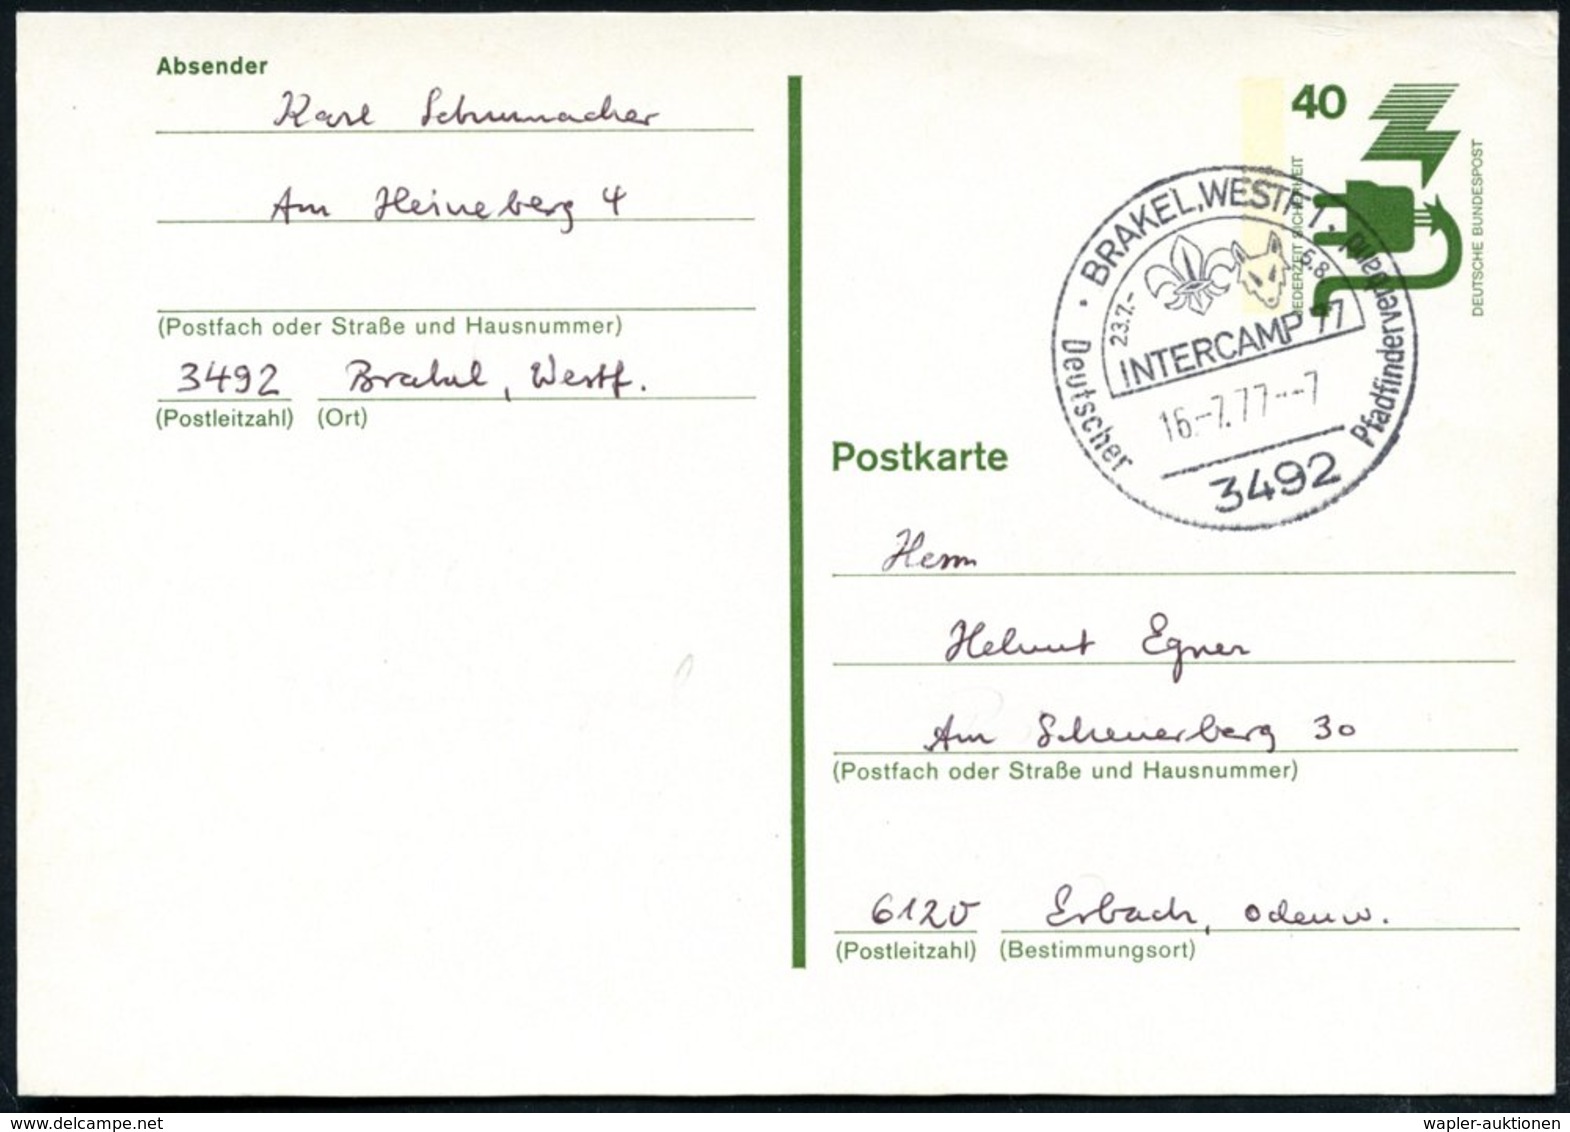 Absender
Karl Schumacher
Am Heineberg 4
(Postfach oder Straße und Hausnummer)
3492 Brakel, Westf.
(Postleitzahl) (Ort)
40
JEDERZEIT SICHERHEIT
DEUTSCHE BUNDESPOST
BRAKEL, WESTF 1.
23.7.-
5.8
INTERCAMP 77
16.-7.77---7
3492
Deutscher Pfadfinderverband
Postkarte
Herrn
Helmut Egner
Am Scheuerberg 30
(Postfach oder Straße und Hausnummer)
6120 Erbach, Odenw.
(Postleitzahl) (Bestimmungsort)
wapler-auktionen